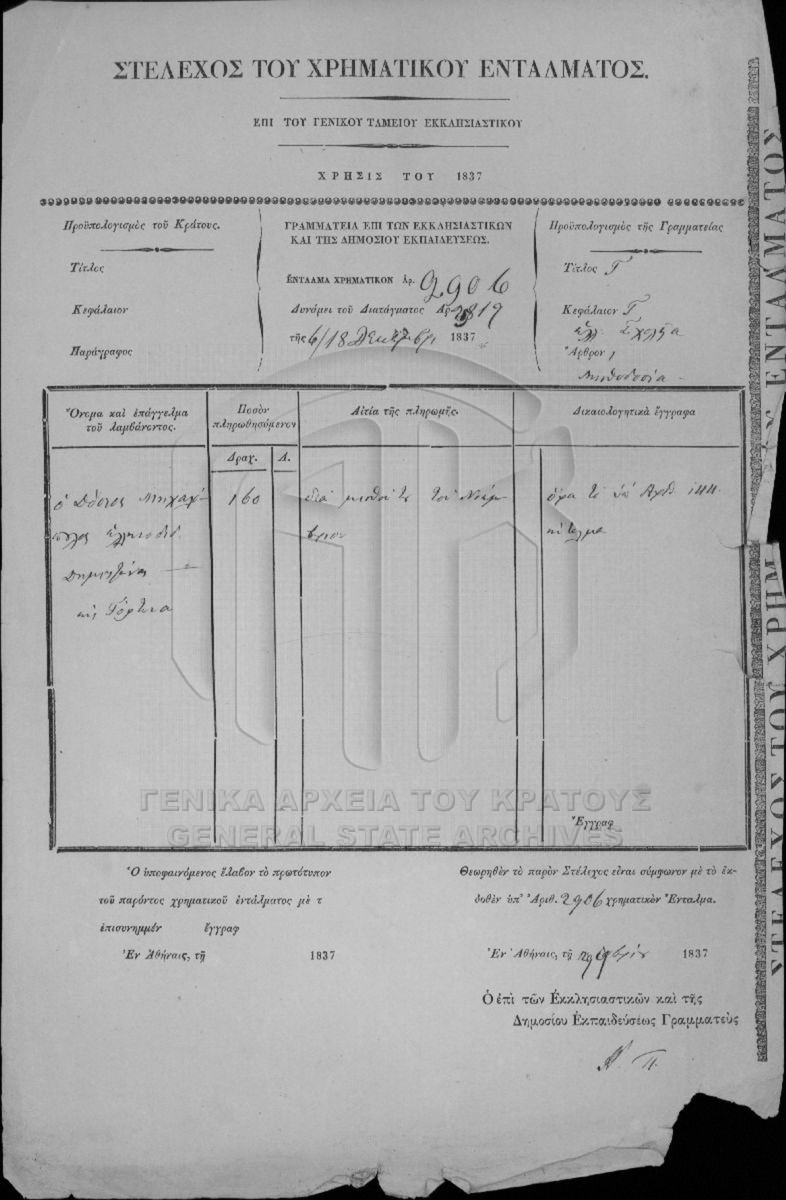 ΣΤΕΛΕΧΟΣ ΤΟΥ ΧΡΗΜΑΤΙΚΟΥ ΕΝΤΑΛΜΑΤΟΣ.
ΕΠΙ ΤΟΥ ΓΕΝΙΚΟΥ ΤΑΜΕΙΟΥ ΕΚΚΛΗΣΙΑΣΤΙΚΟΥ
ΧΡΗΣΙΣ ΤΟΥ 1837
Προϋπολογισμὸς τοῦ Κράτους.
Τίτλος
Κεφάλαιον
Παράγραφος
ΓΡΑΜΜΑΤΕΙΑ ΕΠΙ ΤΩΝ ΕΚΚΛΗΣΙΑΣΤΙΚΩΝ
ΚΑΙ ΤΗΣ ΔΗΜΟΣΙΟΥ ΕΚΠΑΙΔΕΥΣΕΩΣ.
ΕΝΤΑΛΜΑ ΧΡΗΜΑΤΙΚΟΝ Ἀρ. 2906
Δυνάμει τοῦ Διατάγματος Ἀρ
τῆς 6/18 Δεκεμβρ 1837
Προϋπολογισμὸς τῆς Γραμματείας
Τίτλος Γ
Κεφάλαιον Γ
ἑλλ. Σχολεῖα
Ἄρθρον 1
Μισθοδοσία
Ὄνομα καὶ ἐπάγγελμα
τοῦ λαμβάνοντος.
Ποσὸν
πληρωθησόμενον
Δραχ. Λ.
Αἰτία τῆς πληρωμῆς.
Δικαιολογητικὰ ἔγγραφα
ὁ
εἰς
160
διὰ μισθόν του τοῦ Νοεμ
βρίου
ὅρα τὸ ὑπ' Ἀριθ. 144
Ἔγγραφ
Ὁ ὑποφαινόμενος ἔλαβον τὸ πρωτότυπον
τοῦ παρόντος χρηματικοῦ ἐντάλματος μὲ τ
ἐπισυνημμέν ἔγγραφ
Ἐν Ἀθήναις, τῇ 1837
Θεωρηθὲν τὸ παρὸν Στέλεχος εἶναι σύμφωνον μὲ τὸ ἐκ-
δοθὲν ὑπ' Ἀριθ. 2906 χρηματικὸν Ἔνταλμα.
Ἐν Ἀθήναις, τῇ 1837
Ὁ ἐπὶ τῶν Ἐκκλησιαστικῶν καὶ τῆς
Δημοσίου Ἐκπαιδεύσεως Γραμματεὺς
ΣΤΕΛΕΧΟΣ ΤΟΥ ΧΡΗΜ
ΕΝΤΑΛΜΑΤΟΣ
ΓΕΝΙΚΑ ΑΡΧΕΙΑ ΤΟΥ ΚΡΑΤΟΥΣ
GENERAL STATE ARCHIVES